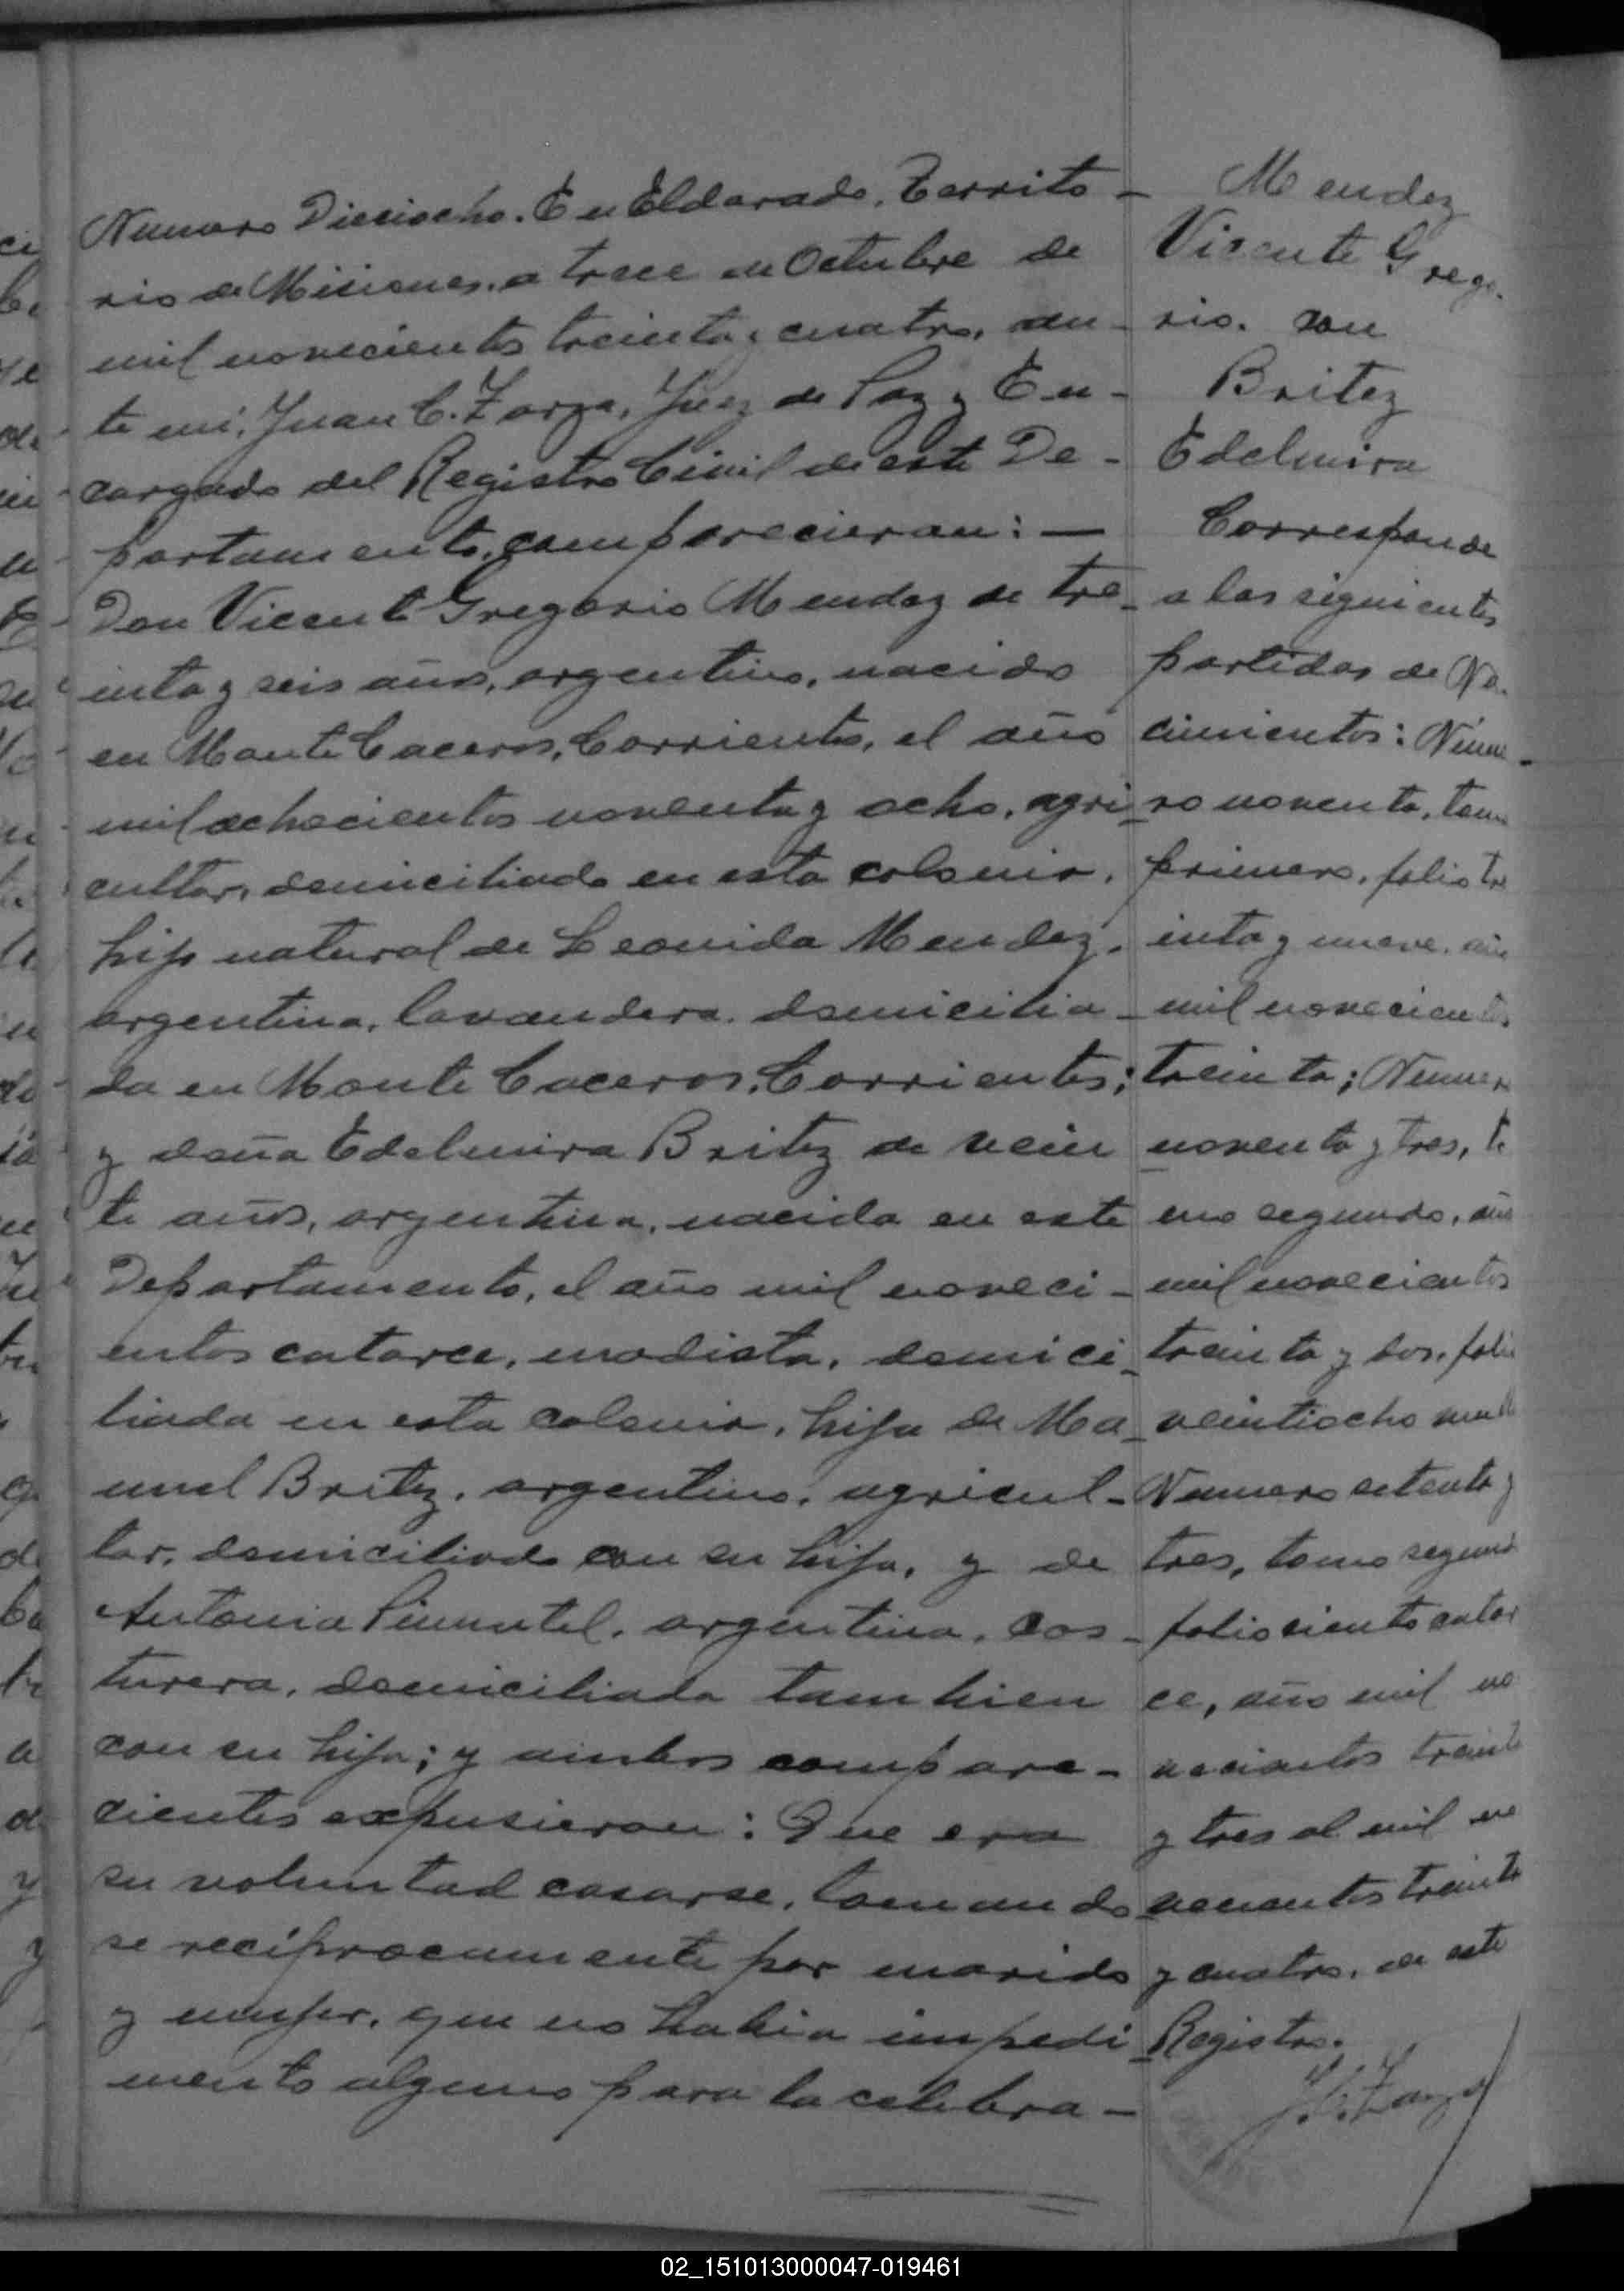 Numero Dieciocho. En Eldorado, Territo-
rio de Misiones, a trece de Octubre de
mil novecientos treinta y cuatro, an-
te mi, Juan C. Zarza, Juez de Paz y En-
cargado del Registro Civil de este De-
partamento, comparecieron: —
Don Vicente Gregorio Mendez de tre-
inta y seis años, argentino, nacido
en Monte Caceros, Corrientes, el año
mil ochocientos noventa y ocho, agri-
cultor, domiciliado en esta colonia,
hijo natural de Leonida Mendez,
argentina, lavandera, domicilia-
da en Monte Caceros, Corrientes;
y doña Edelmira Britez de vein
te años, argentina, nacida en este
Departamento, el año mil noveci-
entos catorce, modista, domici-
liada en esta colonia, hija de Ma-
nuel Britez, argentino, agricul-
tor, domiciliado con su hija, y de
Antonia Pimentel, argentina, cos-
turera, domiciliada tambien
con su hija; y ambos compare-
cientes expusieron: Que era
su voluntad casarse, tomando
se reciprocamente por marido
y mujer, que no habia impedi-
mento alguno para la celebra-
Mendez
Vicente Grego-
rio. con
Britez
Edelmira
Corresponde
a las siguientes
partidas de Na-
cimientos: Núme-
ro noventa, tomo
primero, folio tre
inta y nueve, año
mil novecientos
treinta; Numero
noventa y tres, to
mo segundo, año
mil novecientos
treinta y dos, folio
veintiocho
Numero setenta y
tres, tomo segundo
folio ciento cator
ce, año mil no
vecientos treinta
y tres al mil no
vecientos treinta
y cuatro, de este
Registro.
J. C. Zarza
02_151013000047-019461